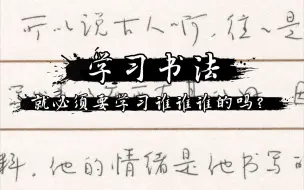 可以说古人啊，往往是
学习书法
就必须要学习谁谁谁的吗?
料，他的情绪是他书写的